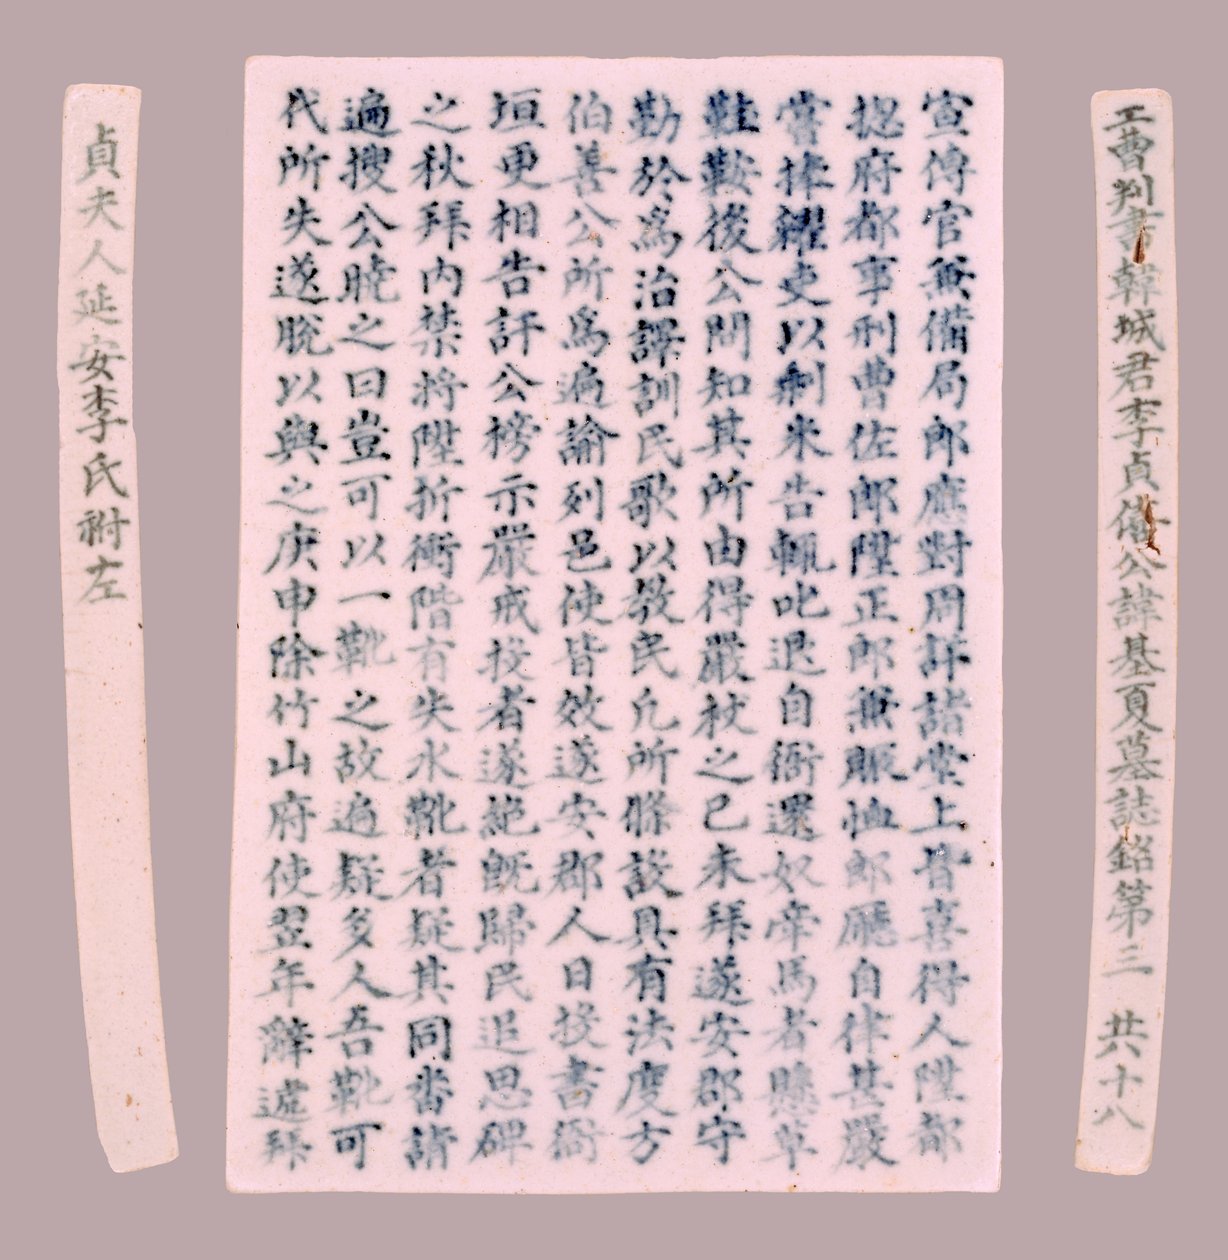 工曹判書韓城君李貞僖公諱基夏墓誌銘第三 共十八
宣傳官兼備局郎應對周詳諸堂上皆喜得人陞都
摠府都事刑曹佐郎陞正郎兼賑恤郎廳自律甚嚴
嘗捧糴吏以剩米告輒叱退自衙還奴帝馬者懸草
鞋鞍後公問知其所由得嚴杖之己未拜遂安郡守
勤於爲治譯訓民歌以敎民凡所條設具有法度方
伯善公所爲遍諭列邑使皆效遂安郡人日投書衙
垣更相告訐公榜示嚴戒投者遂絶旣歸民追思碑
之秋拜內禁將陞折衝階有失水靴者疑其同番請
遍搜公曉之曰豈可以一靴之故遍疑多人吾靴可
代所失遂脫以與之庚申除竹山府使翌年辭遞拜
貞夫人延安李氏祔左